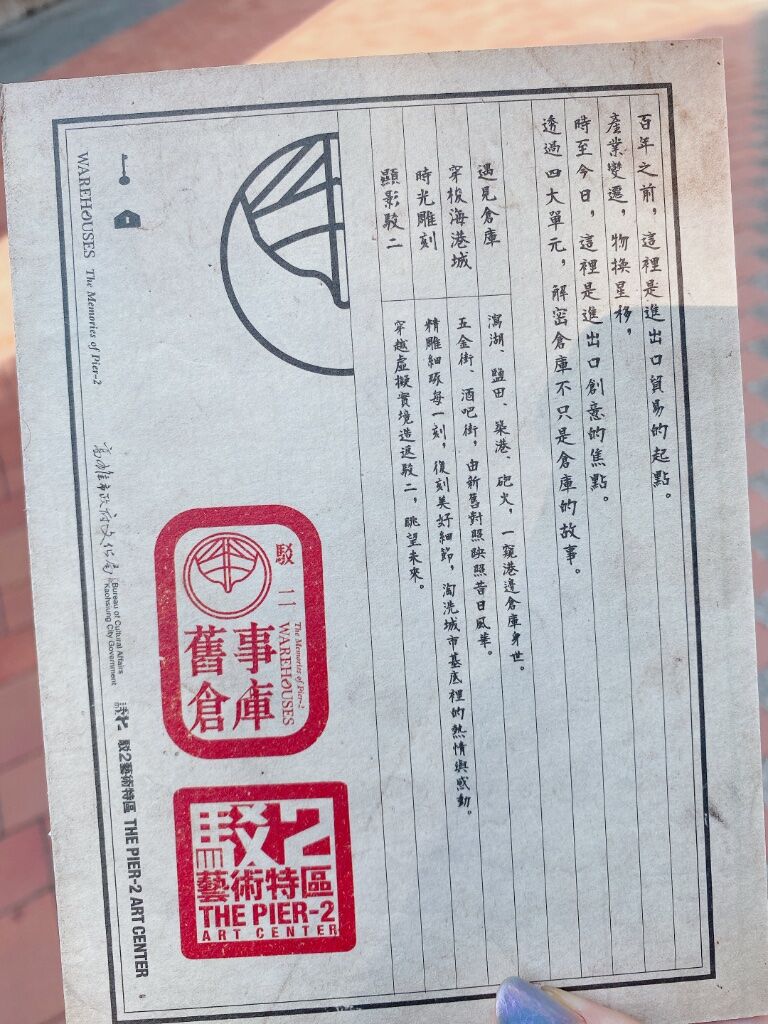 百年之前，這裡是進出口貿易的起點。
產業變遷，物換星移，
時至今日，這裡是進出口創意的焦點。
透過四大單元，解密倉庫不只是倉庫的故事。
遇見倉庫
瀉湖、鹽田、築港、砲火，一窺港邊倉庫身世。
穿梭海港城
五金街、酒吧街，由新舊對照映照昔日風華。
時光雕刻
精雕細琢每一刻，復刻美好細節，淘洗城市基底裡的熱情與感動。
顯影駁二
穿越虛擬實境造返駁二，眺望未來。
WAREHOUSES The Memories of Pier-2
高雄市政府文化局
Bureau of Cultural Affairs
Kaohsiung City Government
駁2藝術特區 THE PIER-2 ART CENTER
駁二
The Memories of Pier-2
WAREHOUSES
舊事
倉庫
駁2
藝術特區
THE PIER-2
ART CENTER